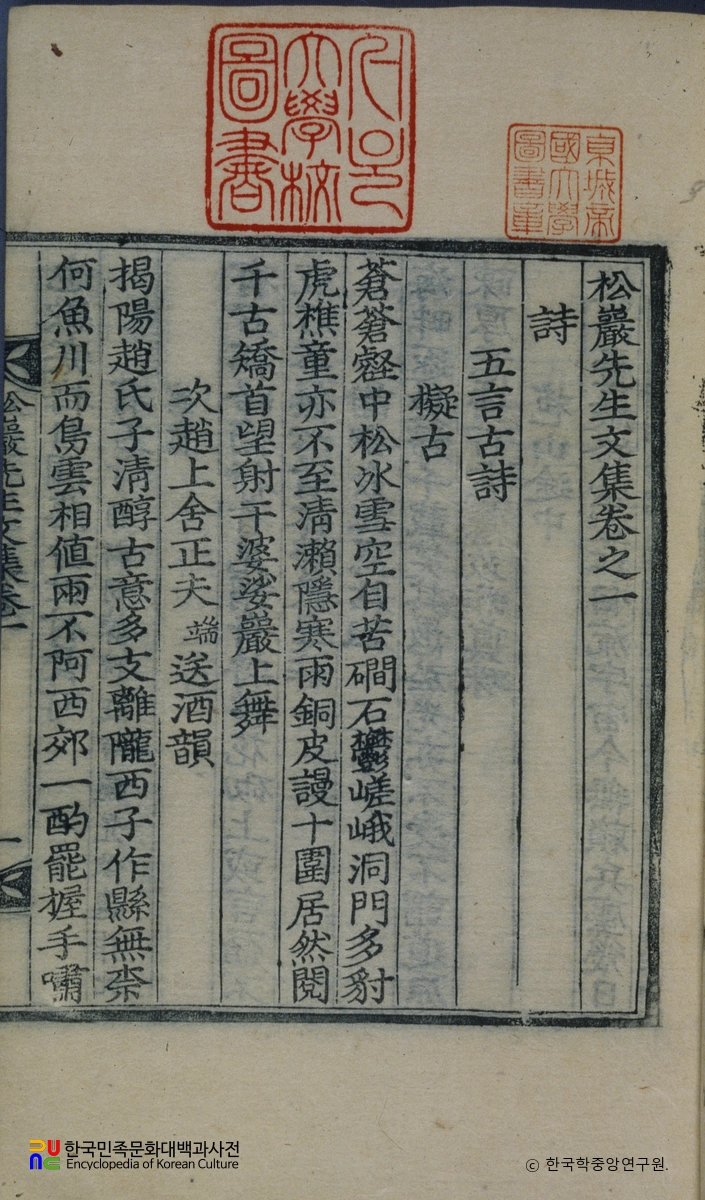 松巖先生文集卷之一
詩
五言古詩
擬古
蒼蒼壑中松冰雪空自苦磵石鬱嵯峨洞門多豺
虎樵童亦不至淸瀨隱寒雨銅皮謾十圍居然閱
千古矯首望射干婆娑巖上舞
次趙上舍正夫 端 送酒韻
揭陽趙氏子淸醇古意多支離隴西子作縣無柰
何魚川而鳧雲相値兩不阿西郊一酌罷握手嘯
松巖先生文集卷一
大學校
圖書
東城帝
國大學
圖書章
한국민족문화대백과사전
Encyclopedia of Korean Culture
© 한국학중앙연구원.